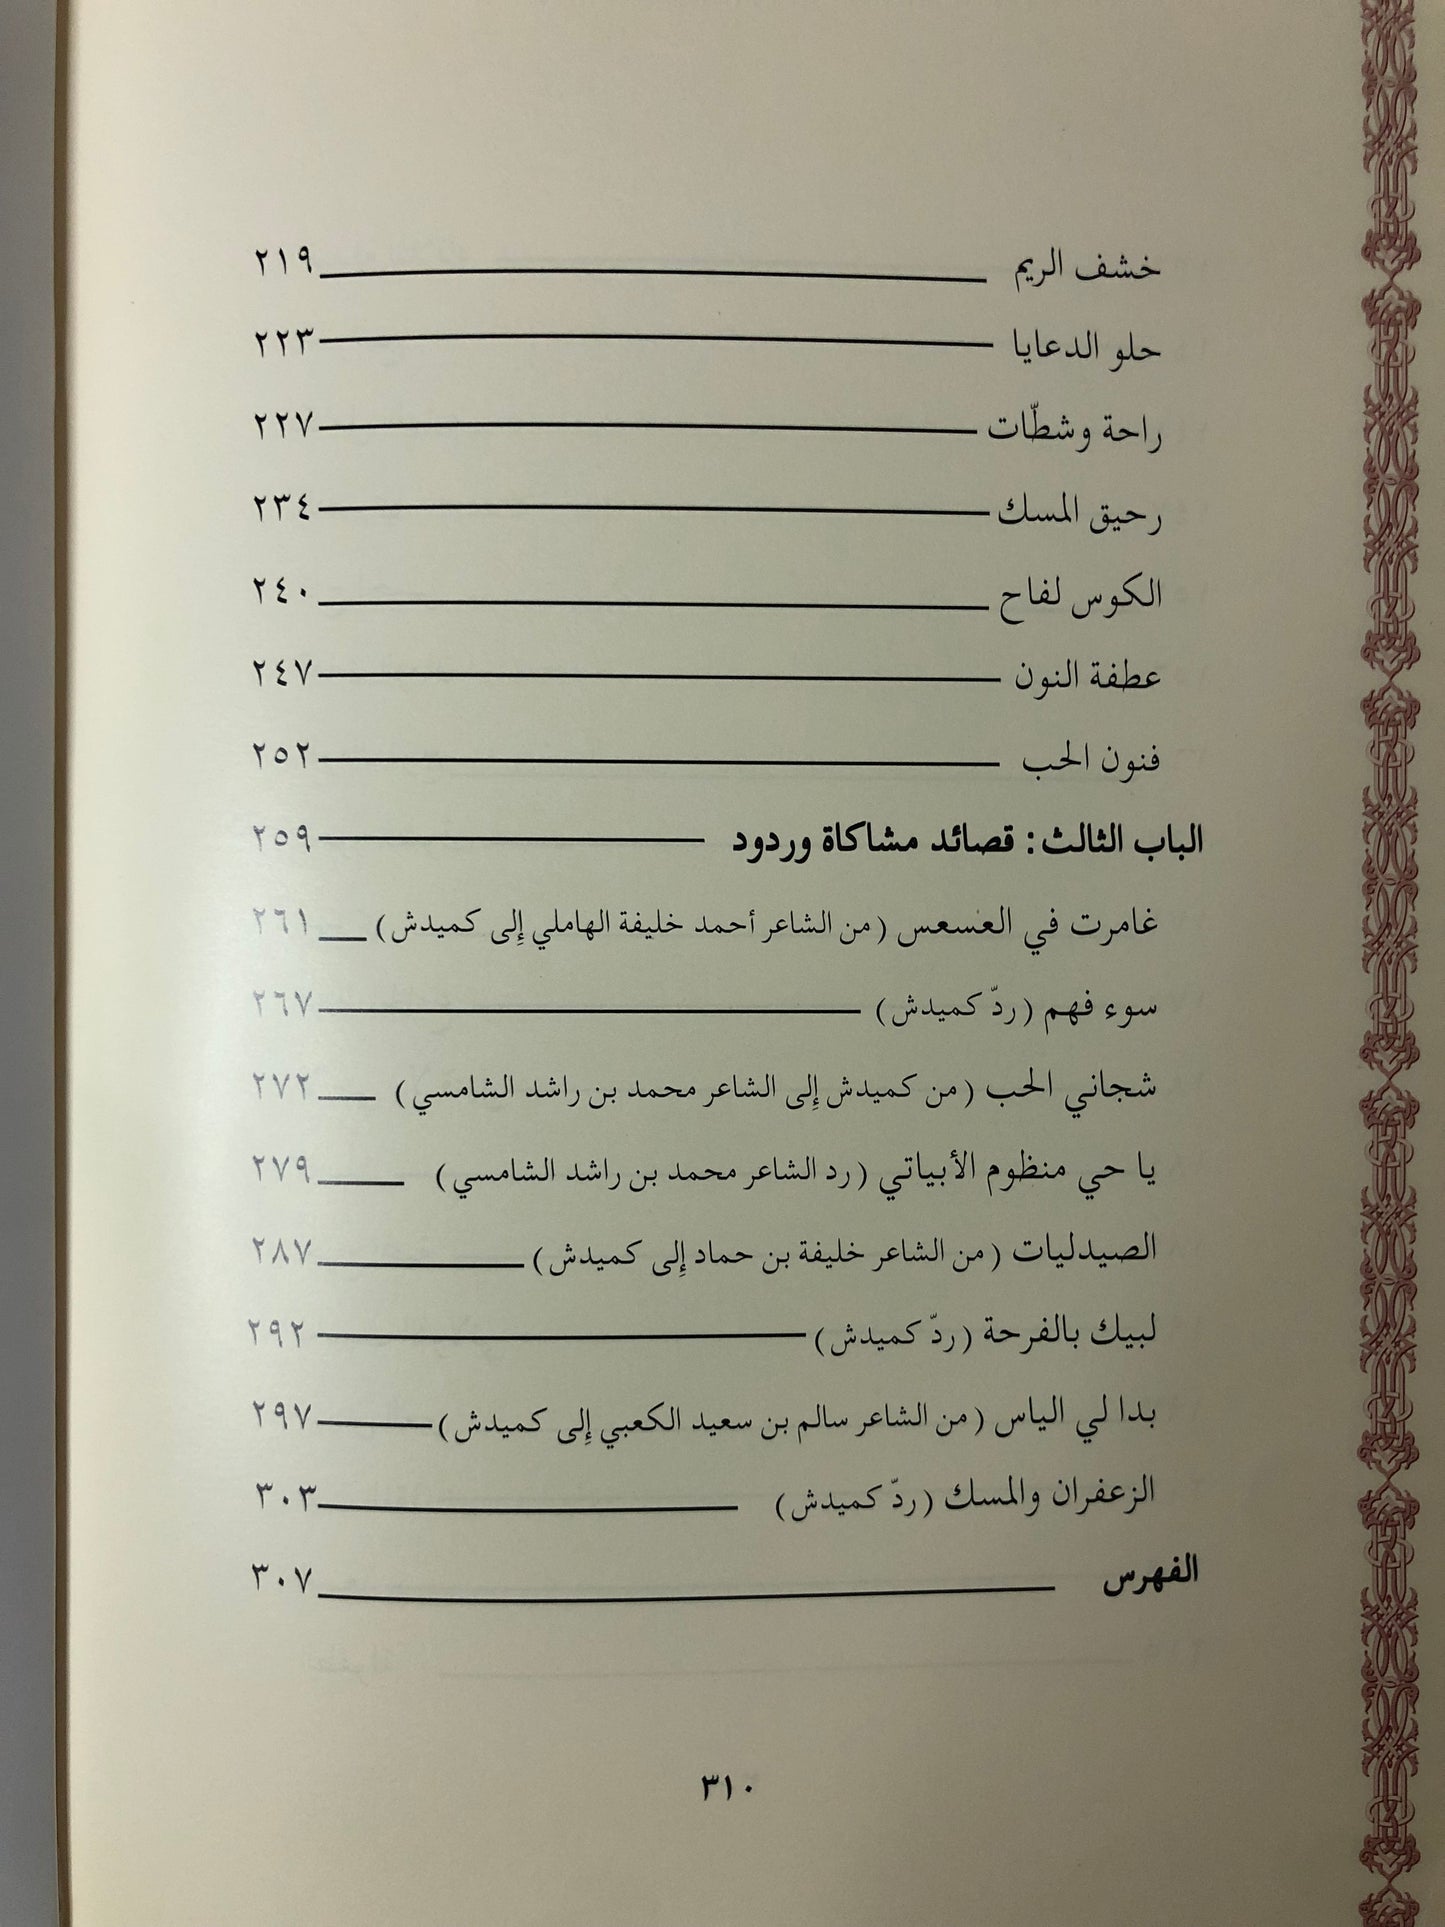 خشف الريم ٢١٩
حلو الدعايا ٢٢٣
راحة وشطّات ٢٢٧
رحيق المسك ٢٣٤
الكوس لفاح ٢٤٠
عطفة النون ٢٤٧
فنون الحب ٢٥٢
الباب الثالث: قصائد مشاكاة وردود ٢٥٩
غامرت في العسعس (من الشاعر أحمد خليفة الهاملي إِلى كميدش) ٢٦١
سوء فهم (ردّ كميدش) ٢٦٧
شجاني الحب (من كميدش إِلى الشاعر محمد بن راشد الشامسي) ٢٧٢
يا حي منظوم الأبياتي (رد الشاعر محمد بن راشد الشامسي) ٢٧٩
الصيدليات (من الشاعر خليفة بن حماد إِلى كميدش) ٢٨٧
لبيك بالفرحة (ردّ كميدش) ٢٩٢
بدا لي الياس (من الشاعر سالم بن سعيد الكعبي إِلى كميدش) ٢٩٧
الزعفران والمسك (ردّ كميدش) ٣٠٣
الفهرس ٣٠٧
٣١٠